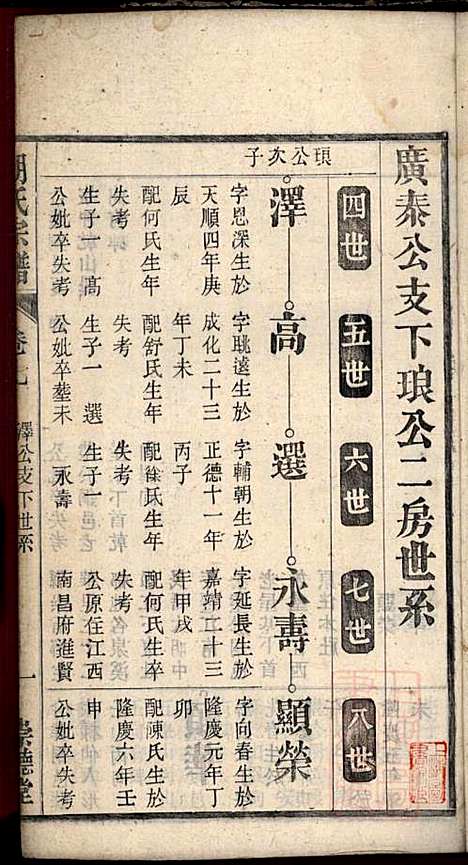 廣泰公支下琅公二房世系
四世
五世
六世
七世
八世
琅公次子
澤
高
選
永壽
顯榮
字恩深生於
天順四年庚
辰
配何氏生年
失考
生子一高
公妣卒失考
字眺遠生於
成化二十三
年丁未
配舒氏生年
失考
生子一選
公妣卒塟未
字輔朝生於
正德十一年
丙子
配徐氏生年
失考
生子一
永壽
字延長生於
嘉靖二十三
年甲戌
配何氏生卒
失考
公原住江西
南昌府進賢
字向春生於
隆慶元年丁
卯
配陳氏生於
隆慶六年壬
申
公妣卒失考
胡氏宗譜
卷七
澤公支下世系
一
崇德堂